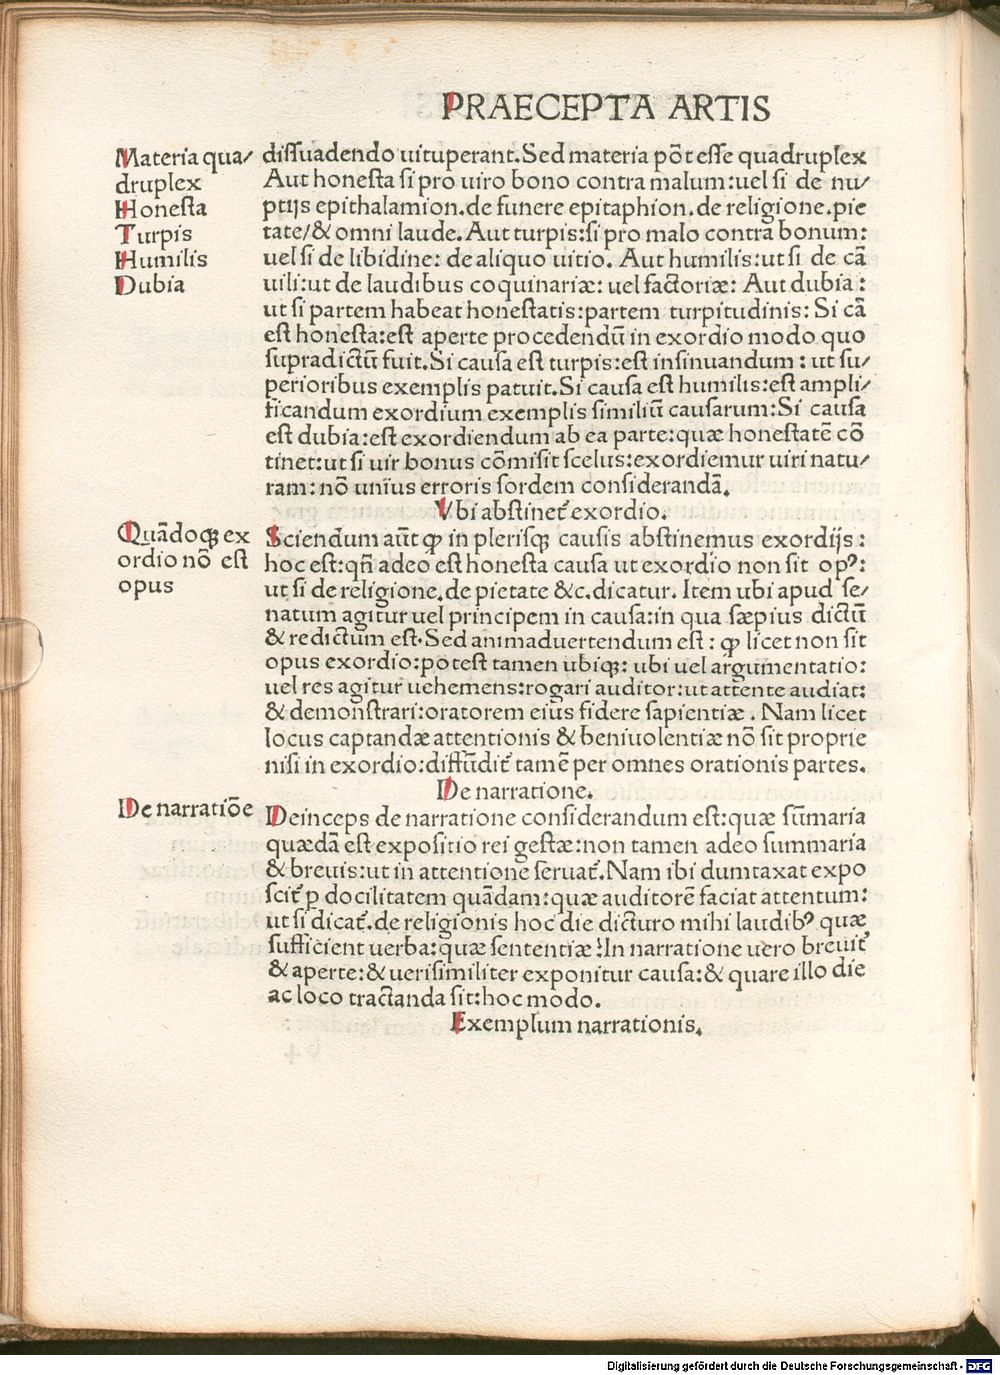 PRAECEPTA ARTIS
Materia qua/
druplex
Honesta
Turpis
Humilis
Dubia
dissuadendo uituperant. Sed materia põt esse quadruplex
Aut honesta si pro uiro bono contra malum: uel si de nu/
ptijs epithalamion. de funere epitaphion. de religione. pie
tate/& omni laude. Aut turpis: si pro malo contra bonum:
uel si de libidine: de aliquo uitio. Aut humilis: ut si de cã
uili: ut de laudibus coquinariæ: uel factoriæ: Aut dubia:
ut si partem habeat honestatis: partem turpitudinis: Si cã
est honesta: est aperte procedendũ in exordio modo quo
supradictũ fuit. Si causa est turpis: est insinuandum: ut su/
perioribus exemplis patuit. Si causa est humilis: est ampli/
ficandum exordium exemplis similiũ causarum: Si causa
est dubia: est exordiendum ab ea parte: quæ honestatẽ cõ
tinet: ut si uir bonus cõmisit scelus: exordiemur uiri natu/
ram: nõ unius erroris sordem considerandã.
Vbi abstinet᷑ exordio.
Quãdoqꝫ ex
ordio nõ est
opus
Sciendum aũt ꝙ in plerisqꝫ causis abstinemus exordijs:
hoc est: qñ adeo est honesta causa ut exordio non sit opꝰ:
ut si de religione. de pietate &c. dicatur. Item ubi apud se/
natum agitur uel principem in causa: in qua sæpius dictũ
& redictum est. Sed animaduertendum est: ꝙ licet non sit
opus exordio: potest tamen ubiqꝫ: ubi uel argumentatio:
uel res agitur uehemens: rogari auditor: ut attente audiat:
& demonstrari: oratorem eius fidere sapientiæ. Nam licet
locus captandæ attentionis & beniuolentiæ nõ sit proprie
nisi in exordio: diffũdit᷑ tamẽ per omnes orationis partes.
De narratione.
De narratiõe
Deinceps de narratione considerandum est: quæ sũmaria
quædã est expositio rei gestæ: non tamen adeo summaria
& breuis: ut in attentione seruat᷑. Nam ibi dumtaxat expo
scit᷑ p docilitatem quãdam: quæ auditorẽ faciat attentum:
ut si dicat᷑. de religionis hoc die dicturo mihi laudibꝰ quæ
sufficient uerba: quæ sententiæ? In narratione uero breuit᷑
& aperte: & uerisimiliter exponitur causa: & quare illo die
ac loco tractanda sit: hoc modo.
Exemplum narrationis.
Digitalisierung gefördert durch die Deutsche Forschungsgemeinschaft - DFG